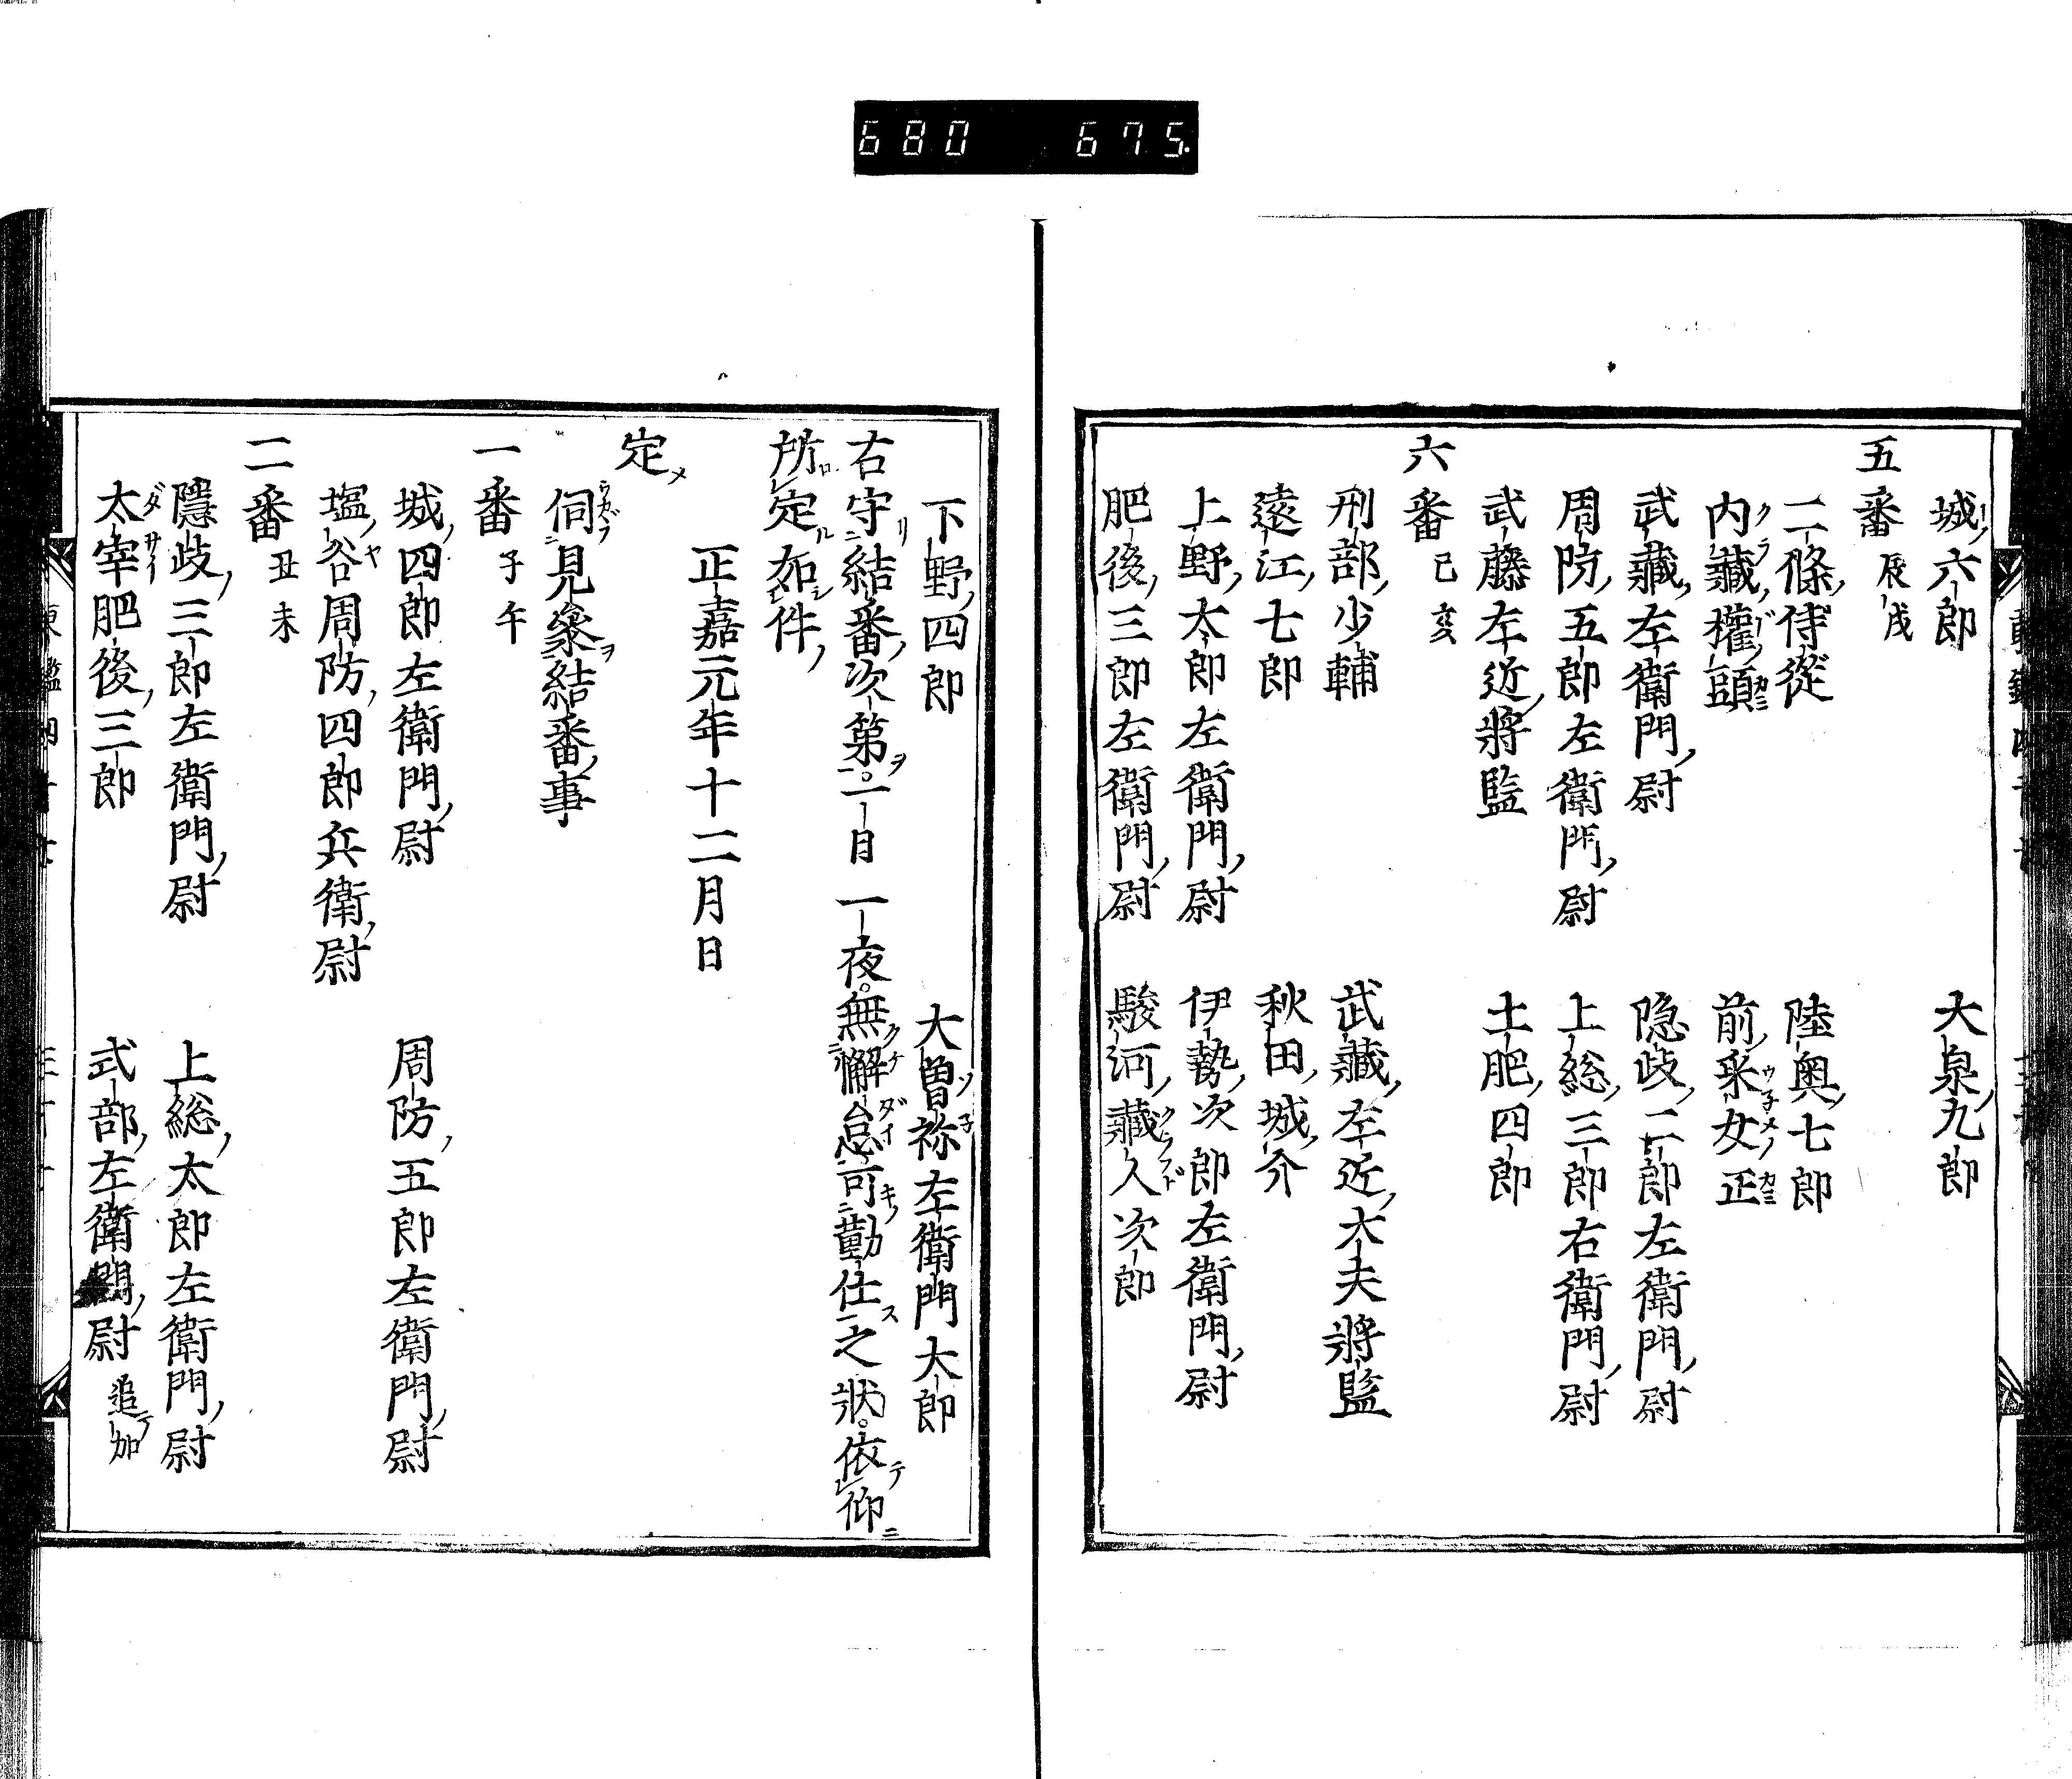 680 675.
城六郎 大泉九郎
五番 辰戌
二條侍從 陸奥七郎
内藏權頭 前采女正
武藏左衛門尉 隠歧二郎左衛門尉
周防五郎左衛門尉 上総三郎右衛門尉
武藤左近將監 土肥四郎
六番 巳亥
刑部少輔 武藏左近大夫將監
遠江七郎 秋田城介
上野太郎左衛門尉 伊勢次郎左衛門尉
肥後三郎左衛門尉 駿河藏人次郎
下野四郎 大曽祢左衛門太郎
右守結番次第一日一夜無懈怠可勤仕之狀依仰
所定如件
正嘉元年十二月日
定
伺見叅結番事
一番 子午
城四郎左衛門尉 周防五郎左衛門尉
塩谷周防四郎兵衛尉
二番 丑未
隱歧三郎左衛門尉 上総太郎左衛門尉
太宰肥後三郎 式部左衛門尉 追加